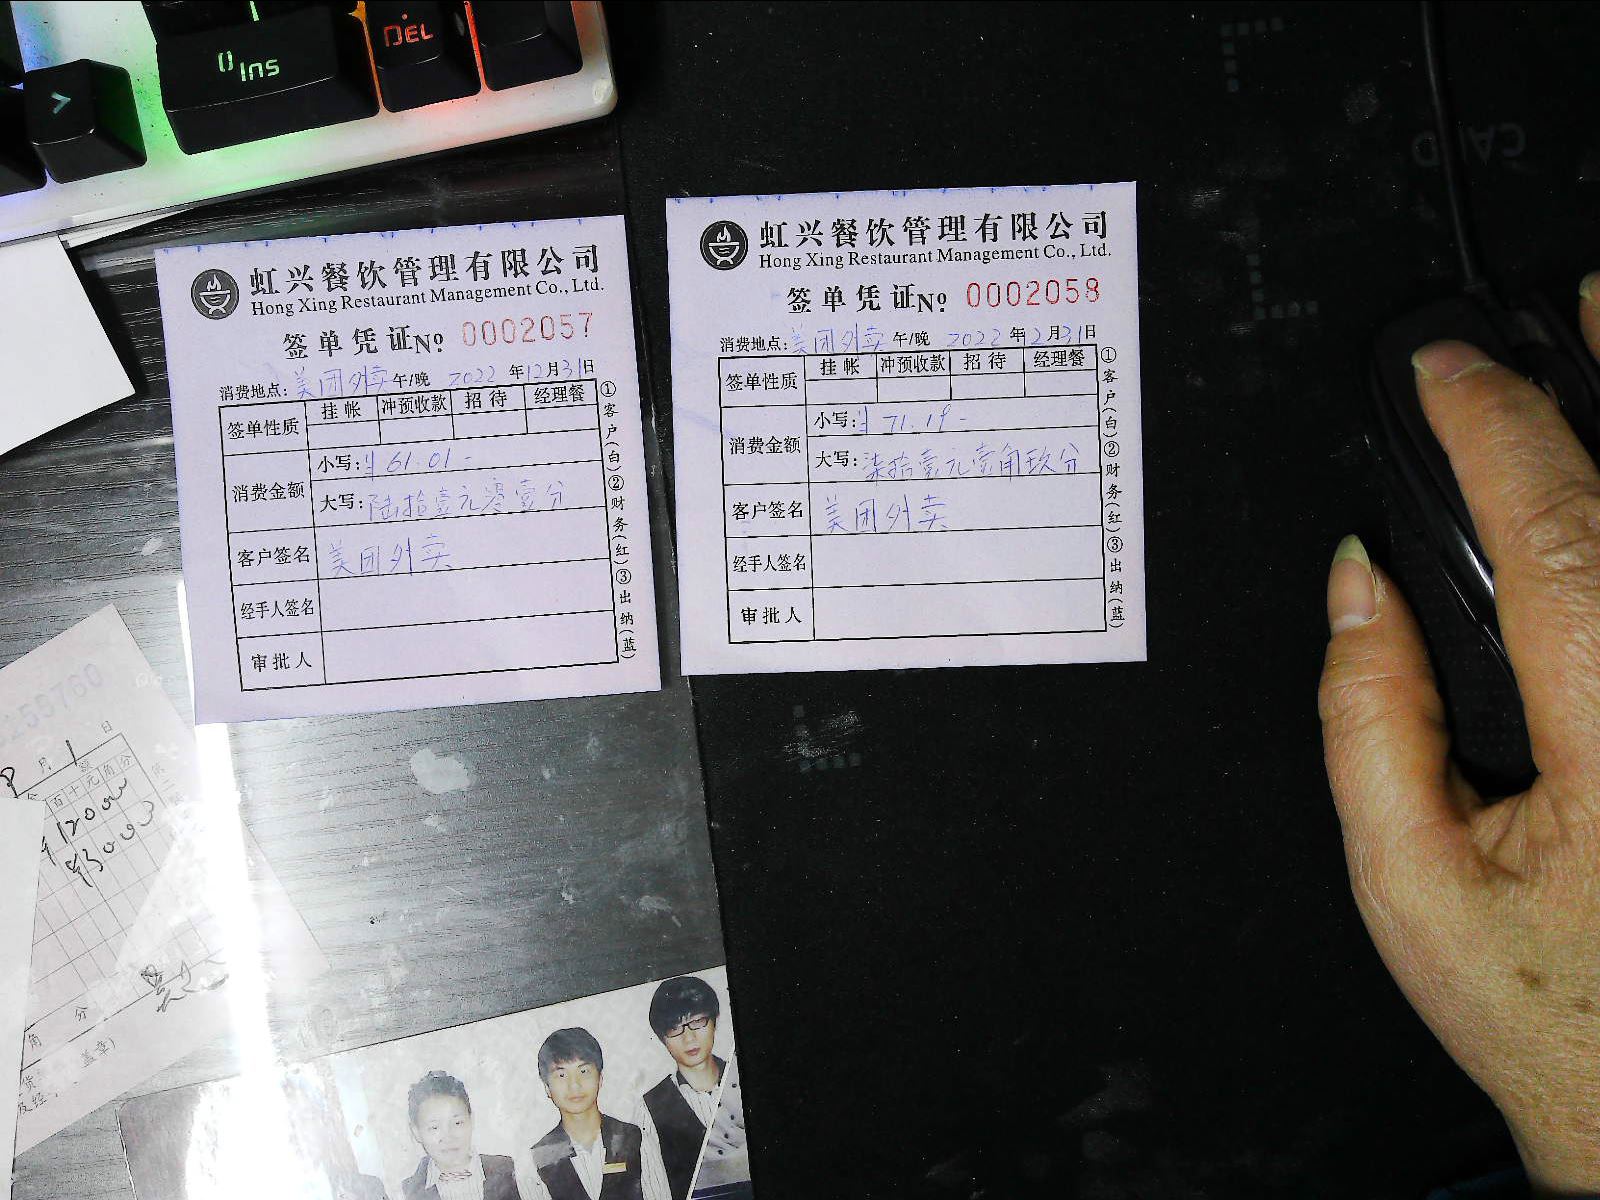 0 Ins
DEL
>
虹兴餐饮管理有限公司
Hong Xing Restaurant Management Co., Ltd.
签单凭证 № 0002057
消费地点: 美团外卖 午/晚 2022 年 12 月 31 日
签单性质 挂帐 冲预收款 招待 经理餐
消费金额 小写: ¥ 61.01 -
大写: 陆拾壹元零壹分
客户签名 美团外卖
经手人签名
审批人
①客户(白)②财务(红)③出纳(蓝)
虹兴餐饮管理有限公司
Hong Xing Restaurant Management Co., Ltd.
签单凭证 № 0002058
消费地点: 美团外卖 午/晚 2022 年 12 月 31 日
签单性质 挂帐 冲预收款 招待 经理餐
消费金额 小写: ¥ 71.19 -
大写: 柒拾壹元壹角玖分
客户签名 美团外卖
经手人签名
审批人
①客户(白)②财务(红)③出纳(蓝)
月 1 日
百 十 元 角 分
角 分
盖章)